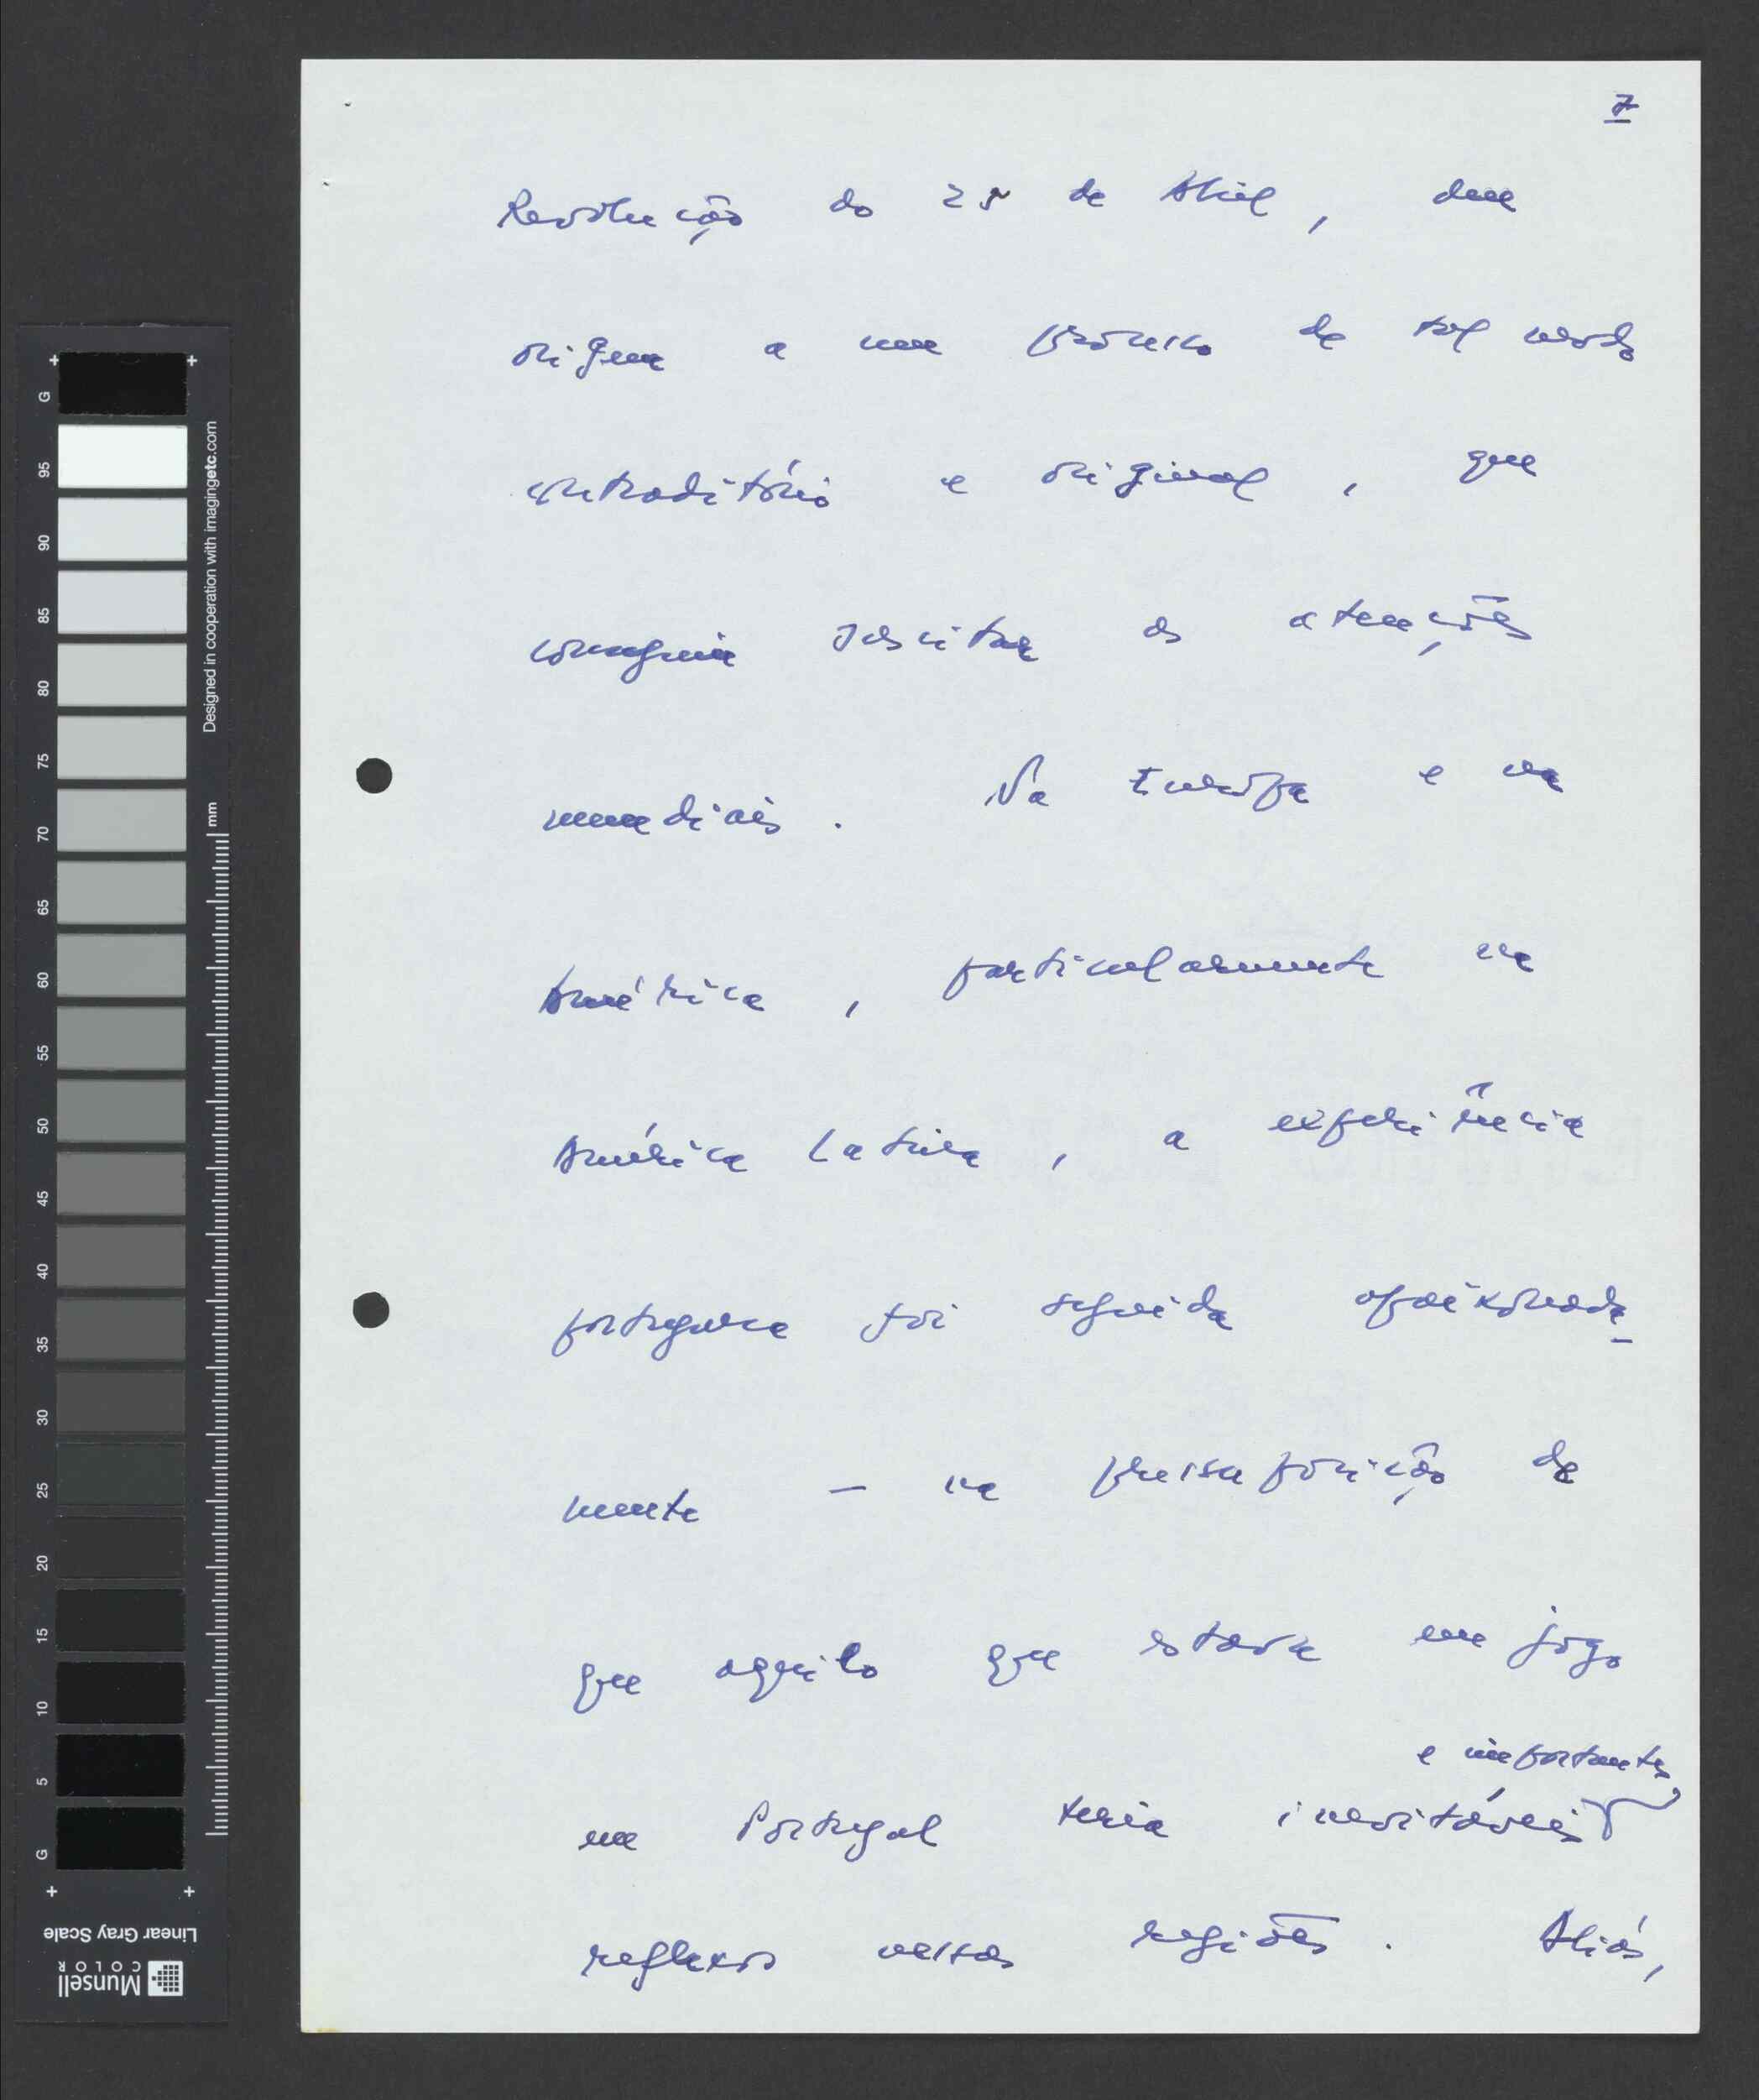 7
Revolução do 25 de Abril, deu
origem a um processo de tal modo
contraditório e original, que
conseguiu suscitar as atenções
mundiais. Na Europa e na
América, particularmente na
América Latina, a experiência
portuguesa foi seguida apaixonada-
mente – na pressuposição de
que aquilo que estava em jogo
e importantes,
em Portugal teria inevitáveis
reflexos nessas regiões. Aliás,
G
95
90
85
80
75
70
65
60
55
50
45
40
35
30
25
20
15
10
5
G
mm
Designed in cooperation with imagingetc.com
Linear Gray Scale
Munsell
COLOR